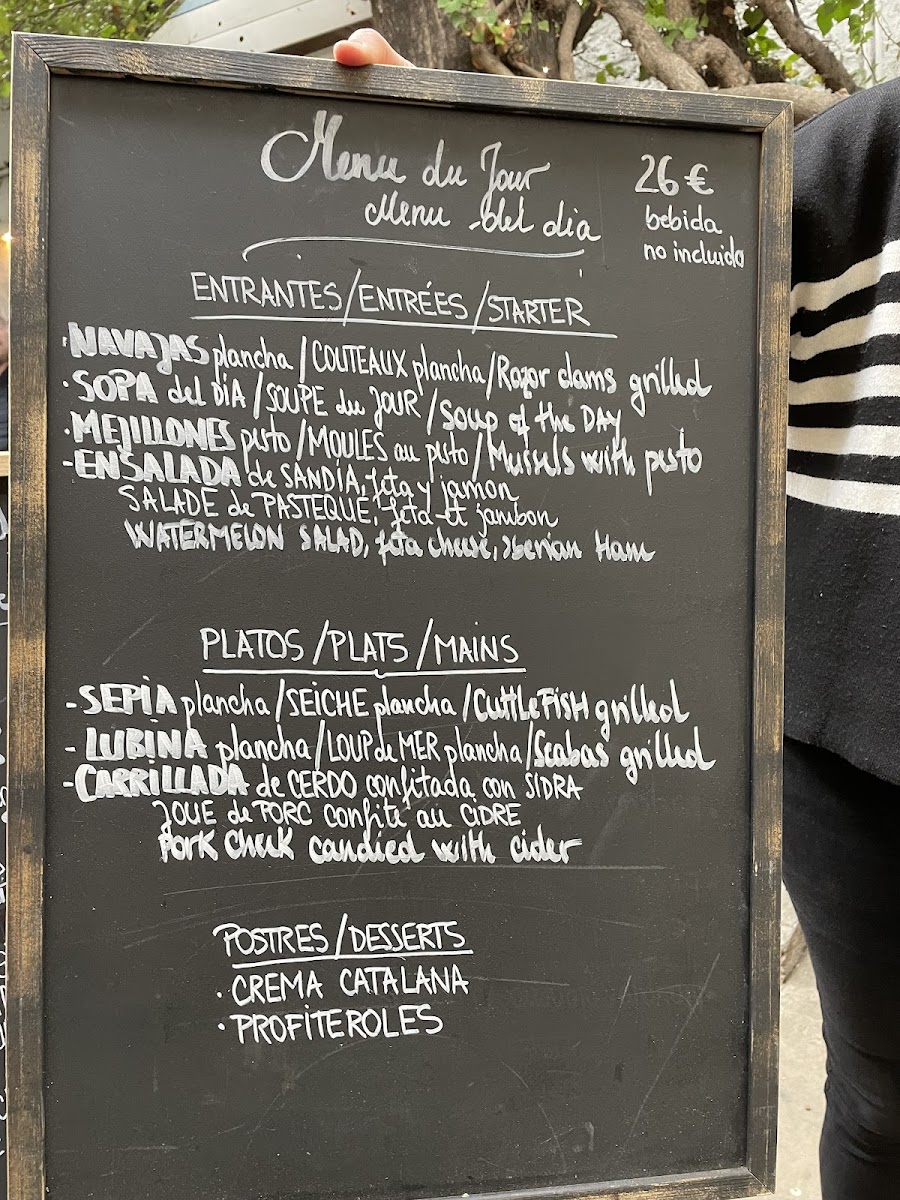 Menu du Jour
Menu del dia
26 €
bebida
no incluida
ENTRANTES/ENTRÉES/STARTER
·NAVAJAS plancha/COUTEAUX plancha/Razor clams grilled
·SOPA del DÍA/SOUPE du JOUR/Soup of the DAY
·MEJILLONES pisto/MOULES au pisto/Mussels with pisto
-ENSALADA de SANDÍA, feta y jamon
SALADE de PASTEQUE, feta et jambon
WATERMELON SALAD, feta cheese, Iberian Ham
PLATOS/PLATS/MAINS
-SEPIA plancha/SEICHE plancha/CuttleFISH grilled
-LUBINA plancha/LOUP de MER plancha/Seabas grilled
-CARRILLADA de CERDO confitada con SIDRA
JOUE de PORC confite au CIDRE
Pork Cheek candied with cider
POSTRES/DESSERTS
·CREMA CATALANA
·PROFITEROLES